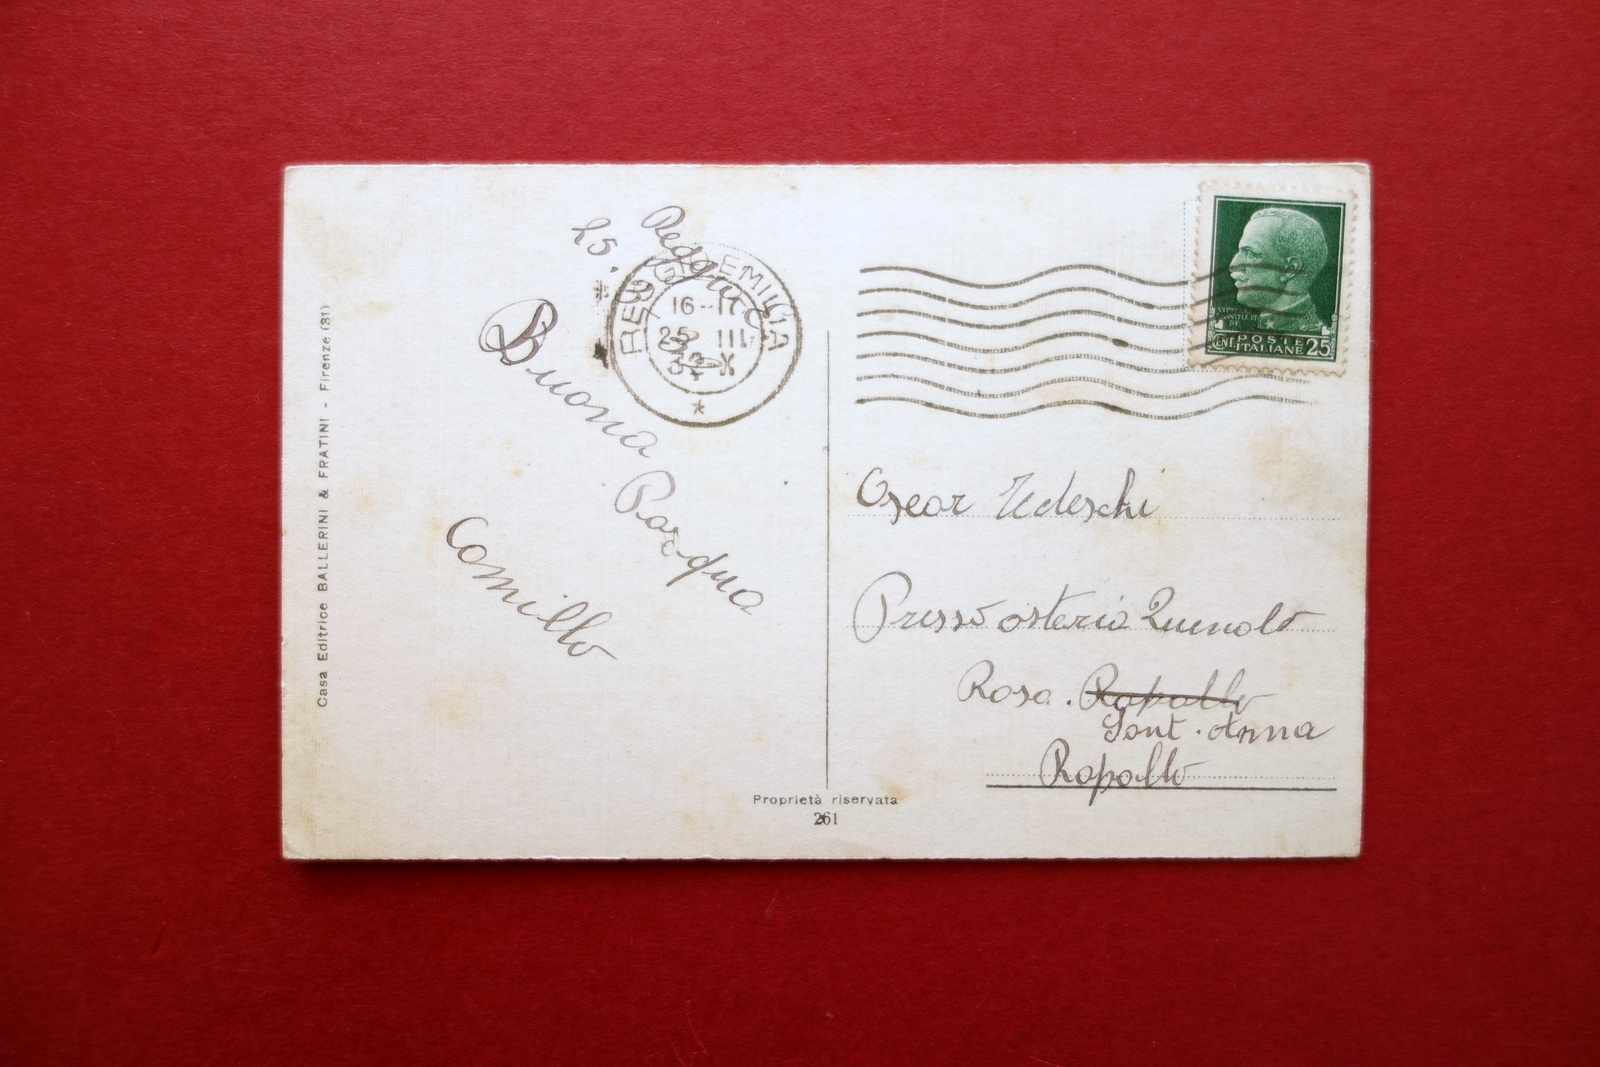 Casa Editrice BALLERINI & FRATINI - Firenze (31)
Reggio
25.
REGGIO EMILIA
16-
25 III
34
*
Buona
Pasqua
Camillo
CENT POSTE ITALIANE 25
Oscar Tedeschi
Presso osteria
Rosa. Rapallo
Sant. Anna
Rapallo
Proprietà riservata
261